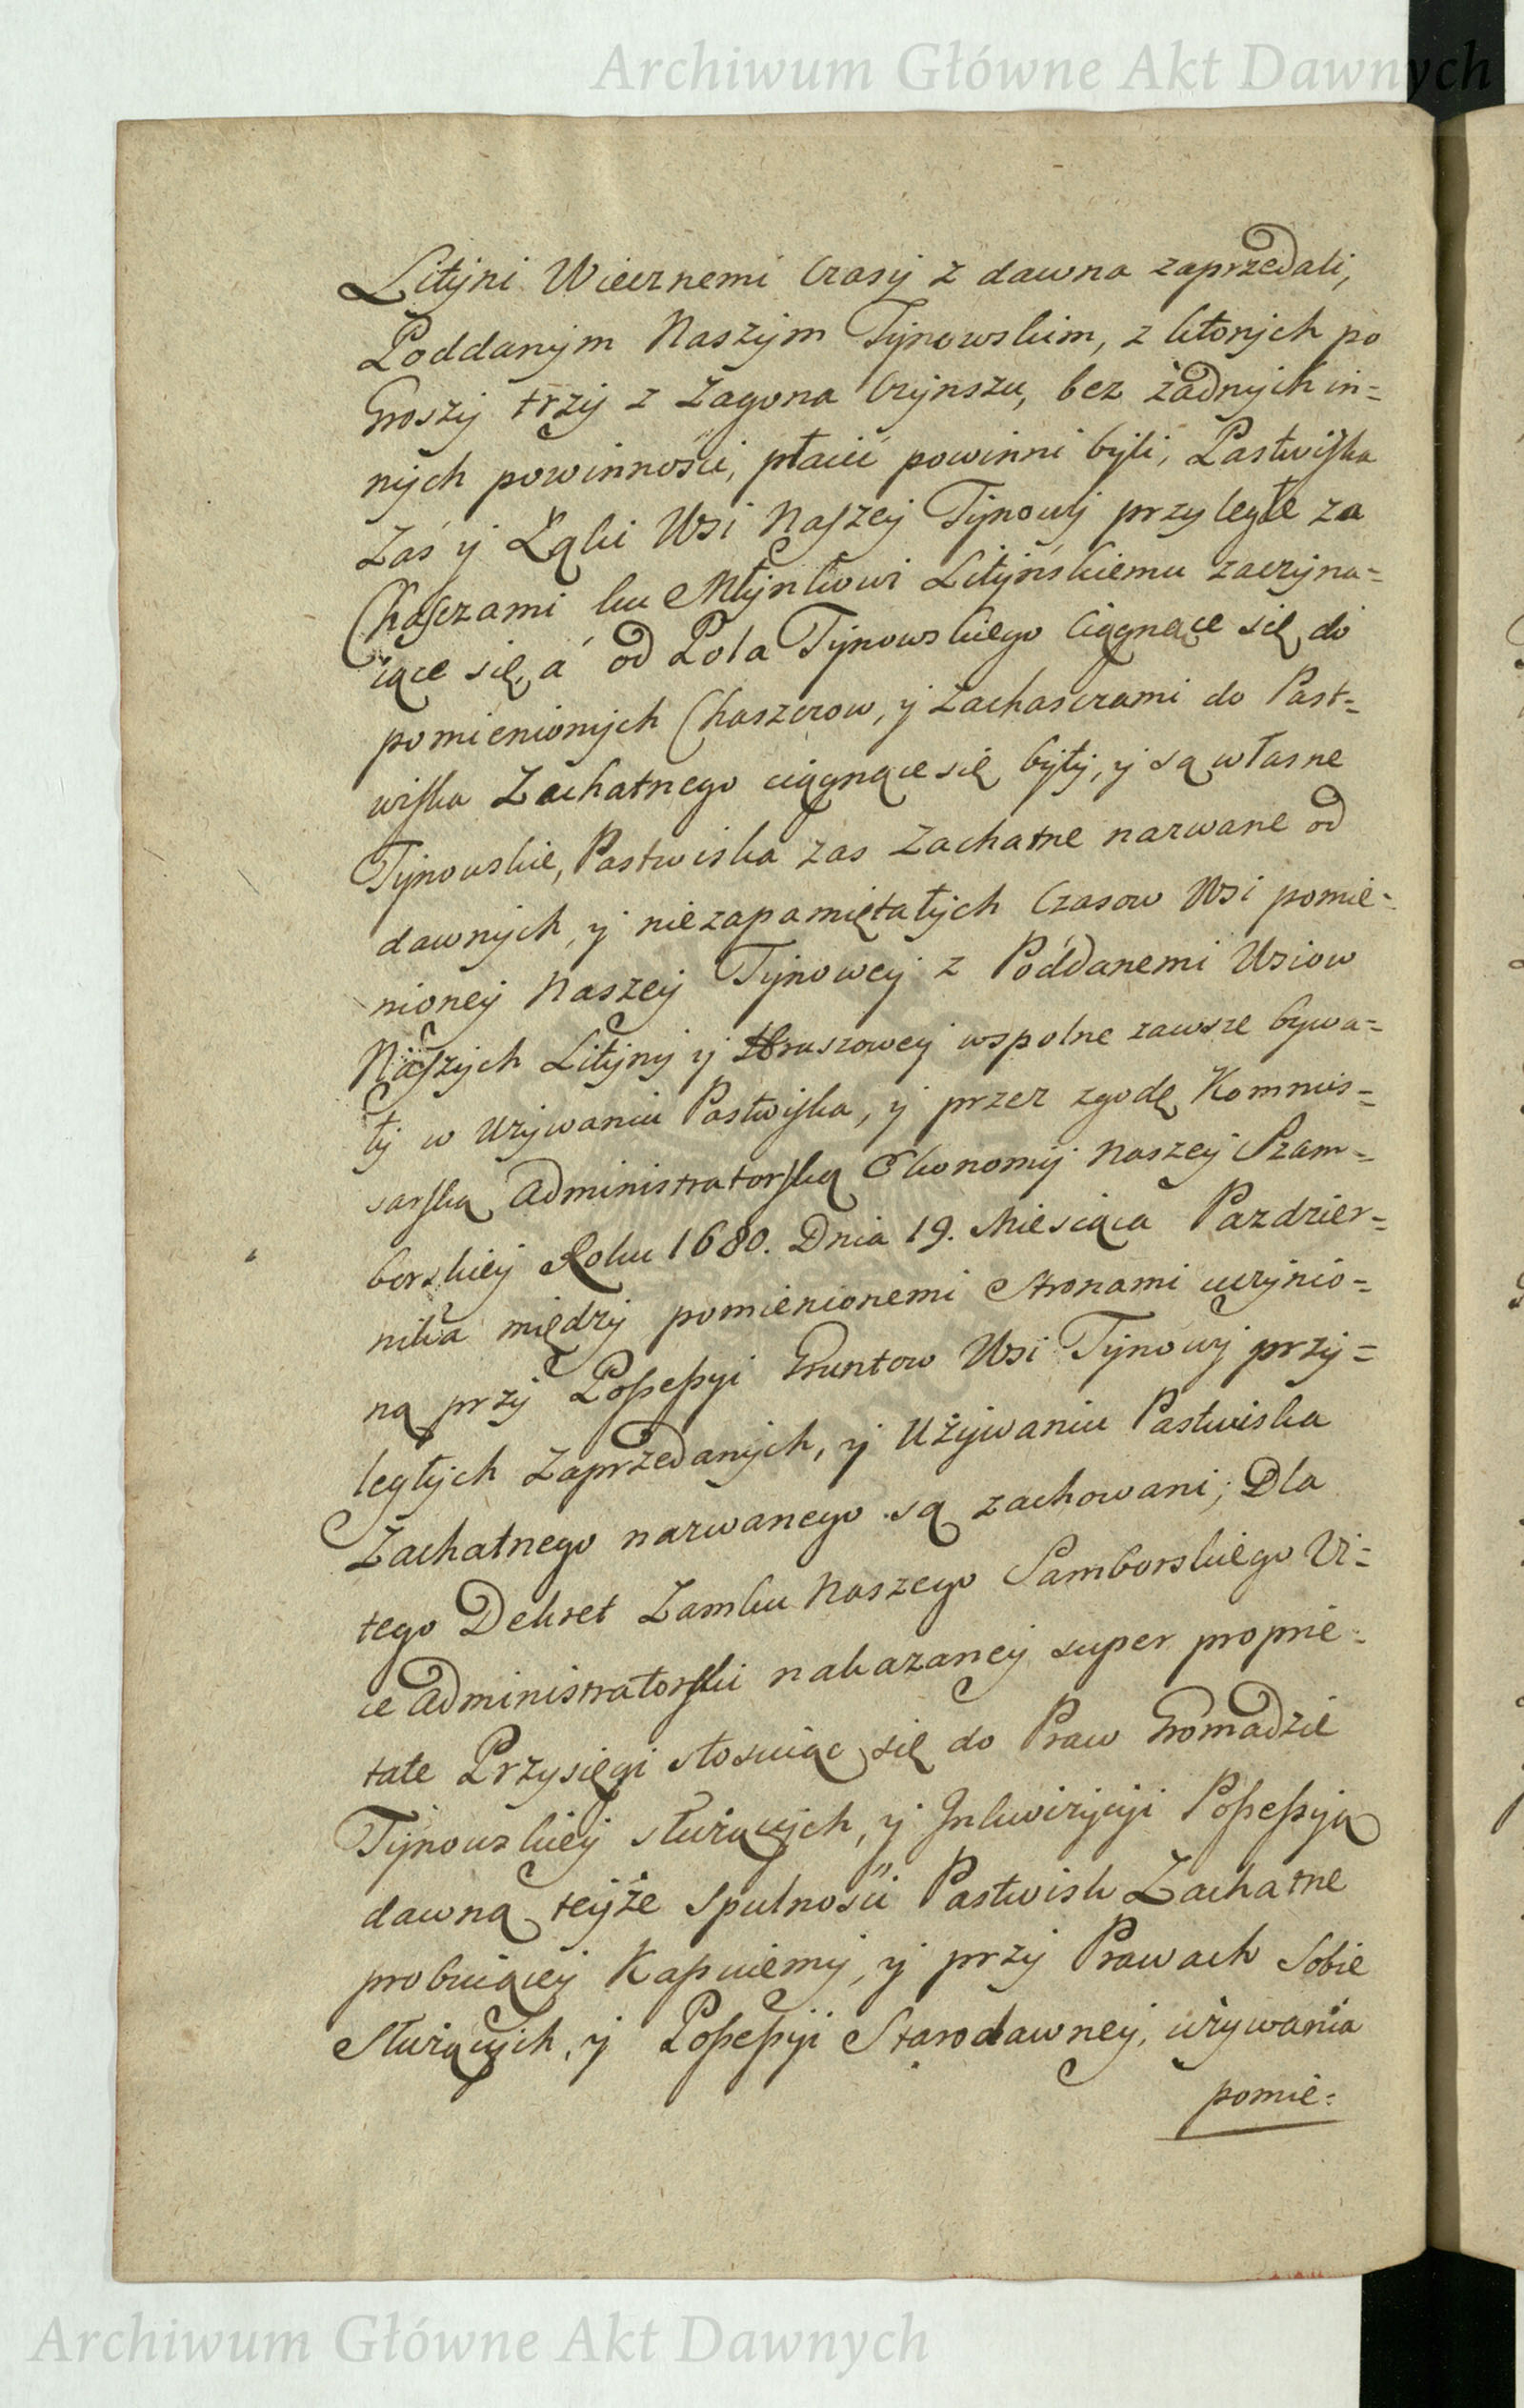 Archiwum Główne Akt Dawnych
Litÿni Wiecznemi Czasÿ z dawna zaprzedali,
Poddanÿm Naszÿm Tÿnowskim, z ktorÿch po
Groszÿ trzÿ z Zagona Czÿnszu, bez żadnÿch in=
nÿch powinności, płacić powinni bÿli, Pastwiska
Zaś ÿ Łąki Wsi Naszeÿ Tÿnowÿ przyległe za
Chaszczami ku Młÿnkowi Litÿńskiemu zaczÿna=
iące się, á od Pola Tÿnowskiego Ciągnące się do
pomienionÿch Chaszczow, ÿ Zachasczami do Past=
wiska Zachatnego ciągnące się bÿłÿ, ÿ są własne
Tÿnowskie, Pastwiska zas Zachatne nazwane od
dawnÿch, ÿ niezapamiętałÿch Czasow Wsi pomie=
nioneÿ Naszeÿ Tÿnoweÿ z Poddanemi Wsiow
Naszÿch Litÿnÿ ÿ Hruszoweÿ wspolne zawsze bywa=
łÿ w Uzÿwaniu Pastwiska, ÿ przez zgodę Kommis=
sarską Administratorską Ekonomÿi Naszeÿ Sam=
borskieÿ Roku 1680. Dnia 19. Miesiąca Pazdzier=
nika międzÿ pomienionemi Stronami uczÿnio=
ną przÿ Possessyi Gruntow Wsi Tÿnowÿ przÿ=
ległÿch Zaprzedanÿch, ÿ Użÿwaniu Pastwiska
Zachatnego nazwanego są zachowani; Dla
tego Dekret Zamku Naszego Samborskiego Vi=
ce Administratorski nakazaneÿ super proprie=
tate Przysięgi stosuiąc się do Praw Gromadzie
Tÿnowskieÿ słuzącÿch, ÿ Inkwizÿcÿi Possessyią
dawną teÿże Spulnosci Pastwisk Zachatne
probuiąceÿ Kassuiemÿ, ÿ przÿ Prawach Sobie
Słuzącÿch, ÿ Possessÿi Starodawneÿ, uzÿwania
pomie=
Archiwum Główne Akt Dawnych